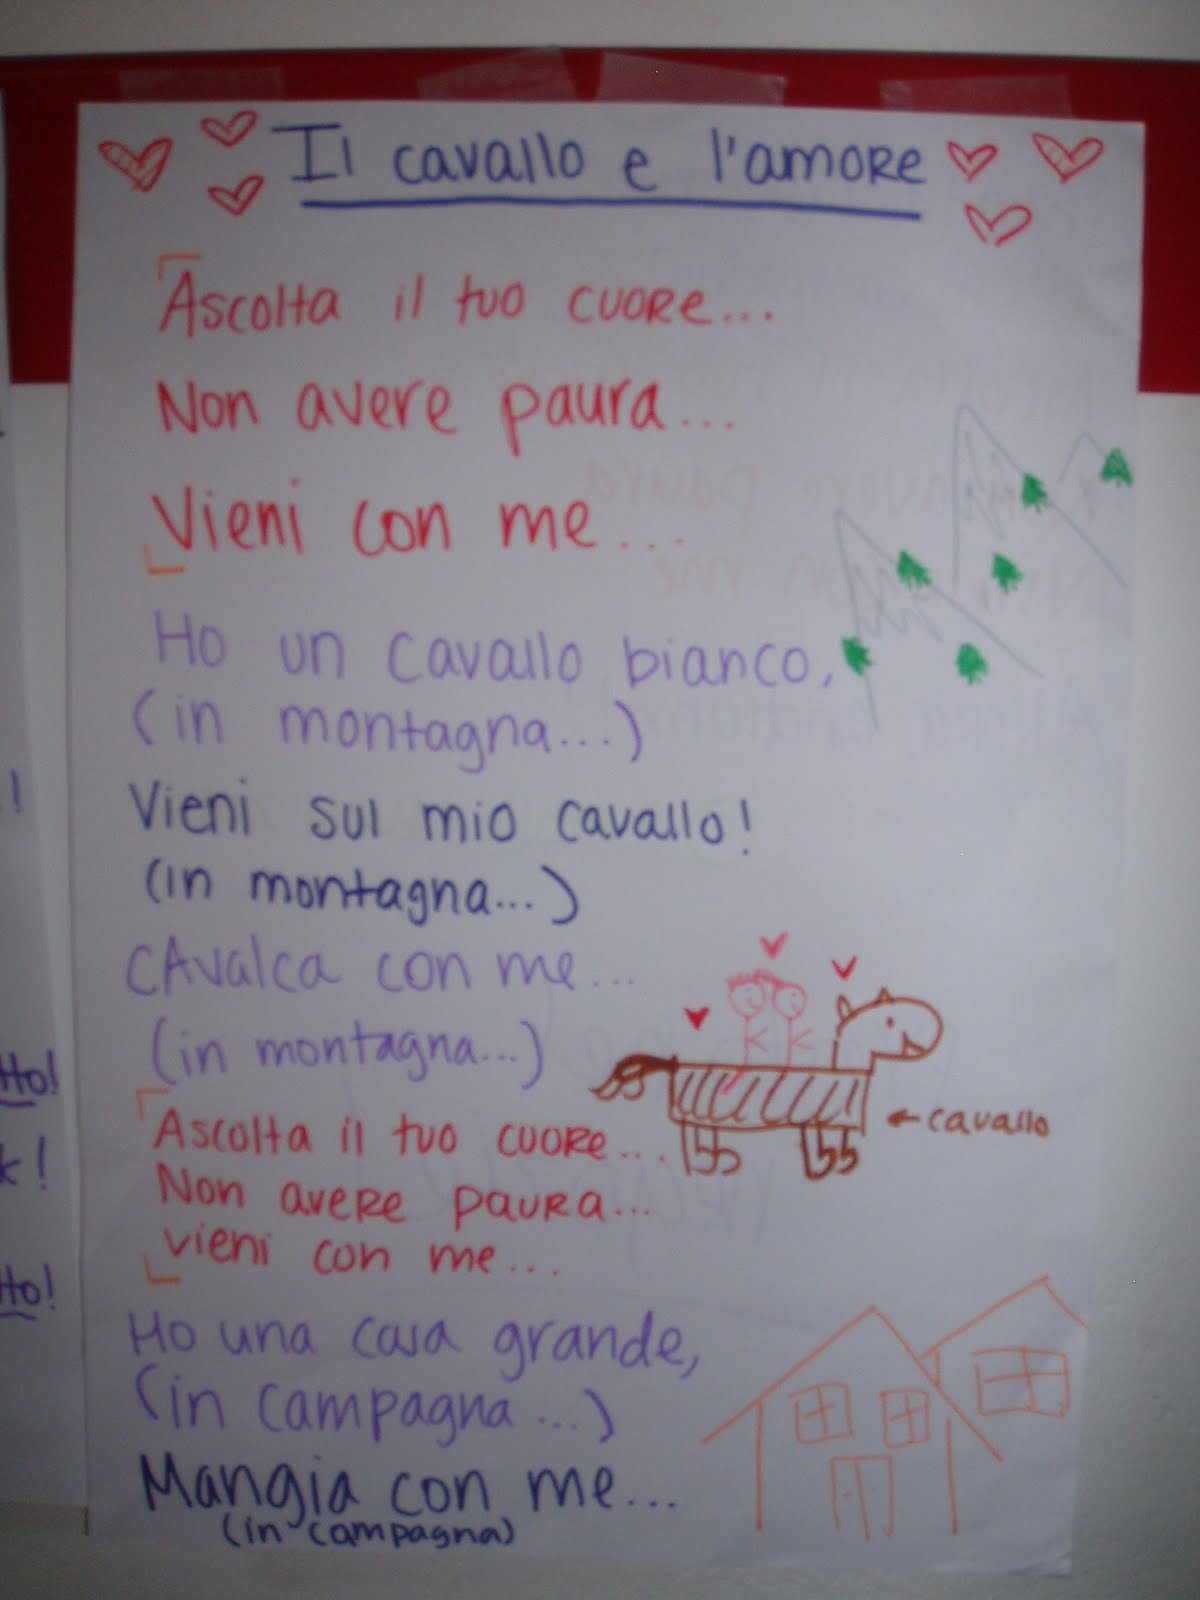 Il cavallo e l'amore
Ascolta il tuo cuore...
Non avere paura...
Vieni con me...
Ho un cavallo bianco,
(in montagna...)
Vieni sul mio cavallo!
(in montagna...)
Cavalca con me...
(in montagna...)
Ascolta il tuo cuore...
Non avere paura...
vieni con me...
← cavallo
Ho una casa grande,
(in campagna...)
Mangia con me...
(in campagna)
Ho!
k!
Ho!